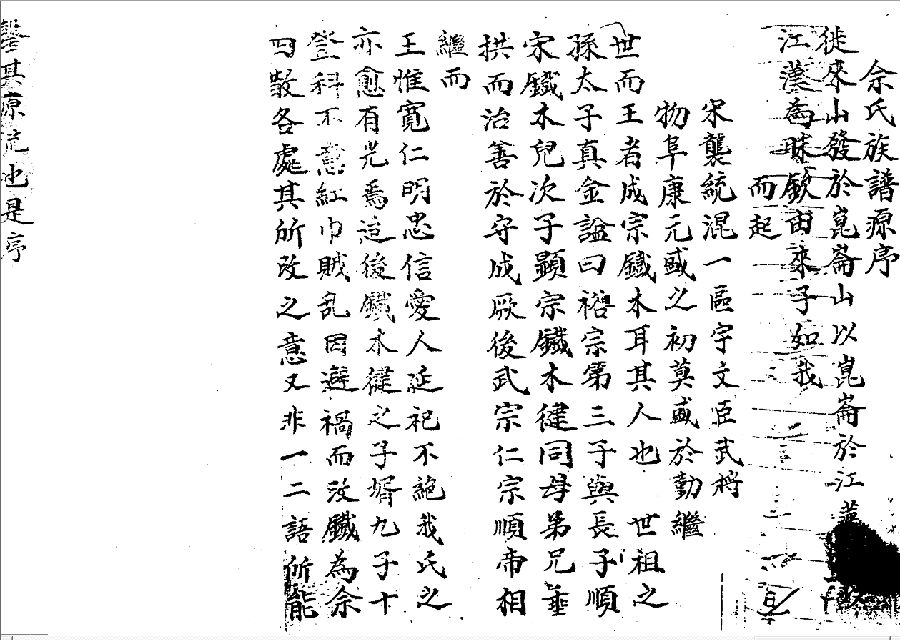 佘氏族譜源序
徙來山發於崑崙山以崑崙於江
江漢為
子如我
而起
宋襲統混一區宇文臣武將
物阜康元盛之初莫盛於勤繼
世而王者成宗鐵木耳其人也 世祖之
孫太子真金謚曰裕宗第三子與長子順
宗鐵木兒次子顯宗鐵木健同母弟兄垂
拱而治善於守成厥後武宗仁宗順帝相
繼而
王惟寬仁明忠信愛人延祀不絕我氏之
亦愈有光焉迨後鐵木健之子婿九子十
登科不意紅巾賊乱因避禍而改鐵為佘
四散各處其所改之意又非一二語所能
罄其源流也是序